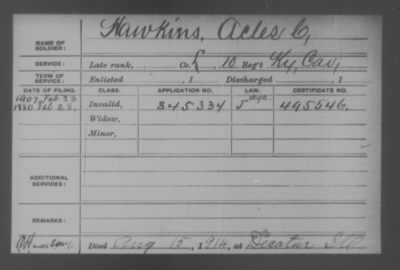 Hawkins, Acles C,
NAME OF SOLDIER:
SERVICE: Late rank, Co. 10 Reg't Ky, Cav,
TERM OF SERVICE: Enlisted , 1 Discharged , 1
DATE OF FILING. CLASS. APPLICATION NO. LAW. CERTIFICATE NO.
1907 Feb 23
1880 Feb 28, Invalid, 345334 J age 495546,
Widow,
Minor,
ADDITIONAL SERVICES:
REMARKS:
Died Aug 15, 1914, at Decatur Ill